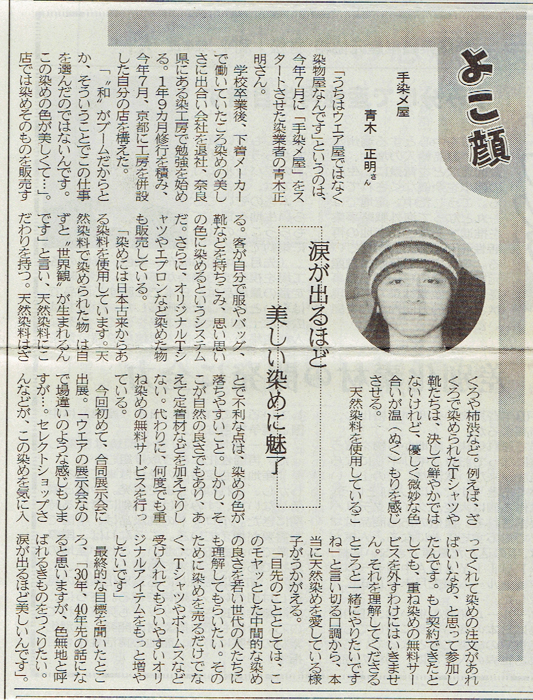 よこ顔
手染メ屋
青木 正明さん
「うちはウエア屋ではなく
染物屋なんです」というのは、
今年7月に「手染メ屋」をス
タートさせた染業者の青木正
明さん。
学校卒業後、下着メーカー
で働いていたころ染めの美し
さに出合い会社を退社、奈良
県にある染工房で勉強を始め
る。1年9カ月修行を積み、
今年7月、京都に工房を併設
した自分の店を構えた。
「〝和〟がブームだからと
か、そういうことでこの仕事
を選んだのではないんです。
この染めの色が美しくて…」。
店では染めそのものを販売す
涙が出るほど
美しい染めに魅了
る。客が自分で服やバッグ、
靴などを持ちこみ、思い思い
の色に染めるというシステム
だ。さらに、オリジナルTシ
ャツやエプロンなど染めた物
も販売している。
「染めには日本古来からあ
る染料を使用しています。天
然染料で染められた物は自
ずと〝世界観〟が生まれるん
です」と言い、天然染料にこ
だわりを持つ。天然染料はざ
くろや柿渋など。例えば、ざ
くろで染められたTシャツや
靴たちは、決して鮮やかでは
ないけれど、優しく微妙な色
合いが温(ぬく)もりを感じ
させる。
天然染料を使用しているこ
とで不利な点は、染めの色が
落ちやすいこと。しかし、そ
こが自然の良さでもあり、あ
えて定着材などを加えてりし
ない。代わりに、何度でも重
ね染めの無料サービスを行っ
ている。
今回初めて、合同展示会に
出展。「ウエアの展示会なの
で場違いのような感じもしま
すが…。セレクトショップさ
んなどが、この染めを気に入
ってくれて染めの注文があれ
ばいいなあ、と思って参加し
たんです。もし契約できたと
しても、重ね染めの無料サー
ビスを外すわけにはいきませ
ん。それを理解してくださる
ところと一緒にやりたいです
ね」と言い切る口調から、本
当に天然染めを愛している様
子がうかがえる。
「目先のこととしては、こ
のモヤッとした中間的な染め
の良さを若い世代の人たちに
も理解してもらいたい。その
ために染めを売るだけでな
く、Tシャツやボトムスなど
受け入れてもらいやすいオリ
ジナルアイテムをもっと増や
したいです」
最終的な目標を聞いたとこ
ろ、「30年、40年先の話にな
ると思いますが、色無地と呼
ばれるきものをつくりたい。
涙が出るほど美しいんです」。